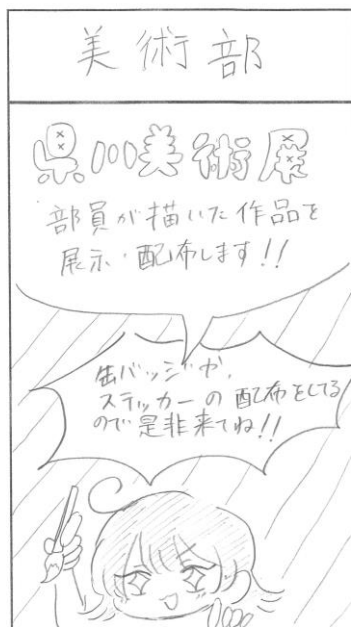 美術部
県川美術展
部員が描いた作品を
展示・配布します!!
缶バッジや、
ステッカーの配布をしてる
ので是非来てね!!